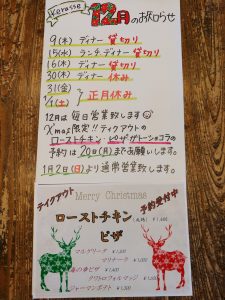 Kerasse 12月のお知らせ
9(木) ディナー 貸切り
15(水) ランチ.ディナー 貸切り
16(木) ディナー 貸切り
30(木) ディナー 休み
31(金)
1/1(土) 正月休み
12月は毎日営業致します
Xmas限定!!テイクアウトの
ローストチキン・ピザザトーレコラの
予約は20日(月)までお願いします。
1月2日(日)より通常営業致します。
テイクアウト Merry Christmas 予約受付中
ローストチキン
ピザ
マルゲリータ
マリナーラ
クワトロフォルマッジ
ジャーマンポテト